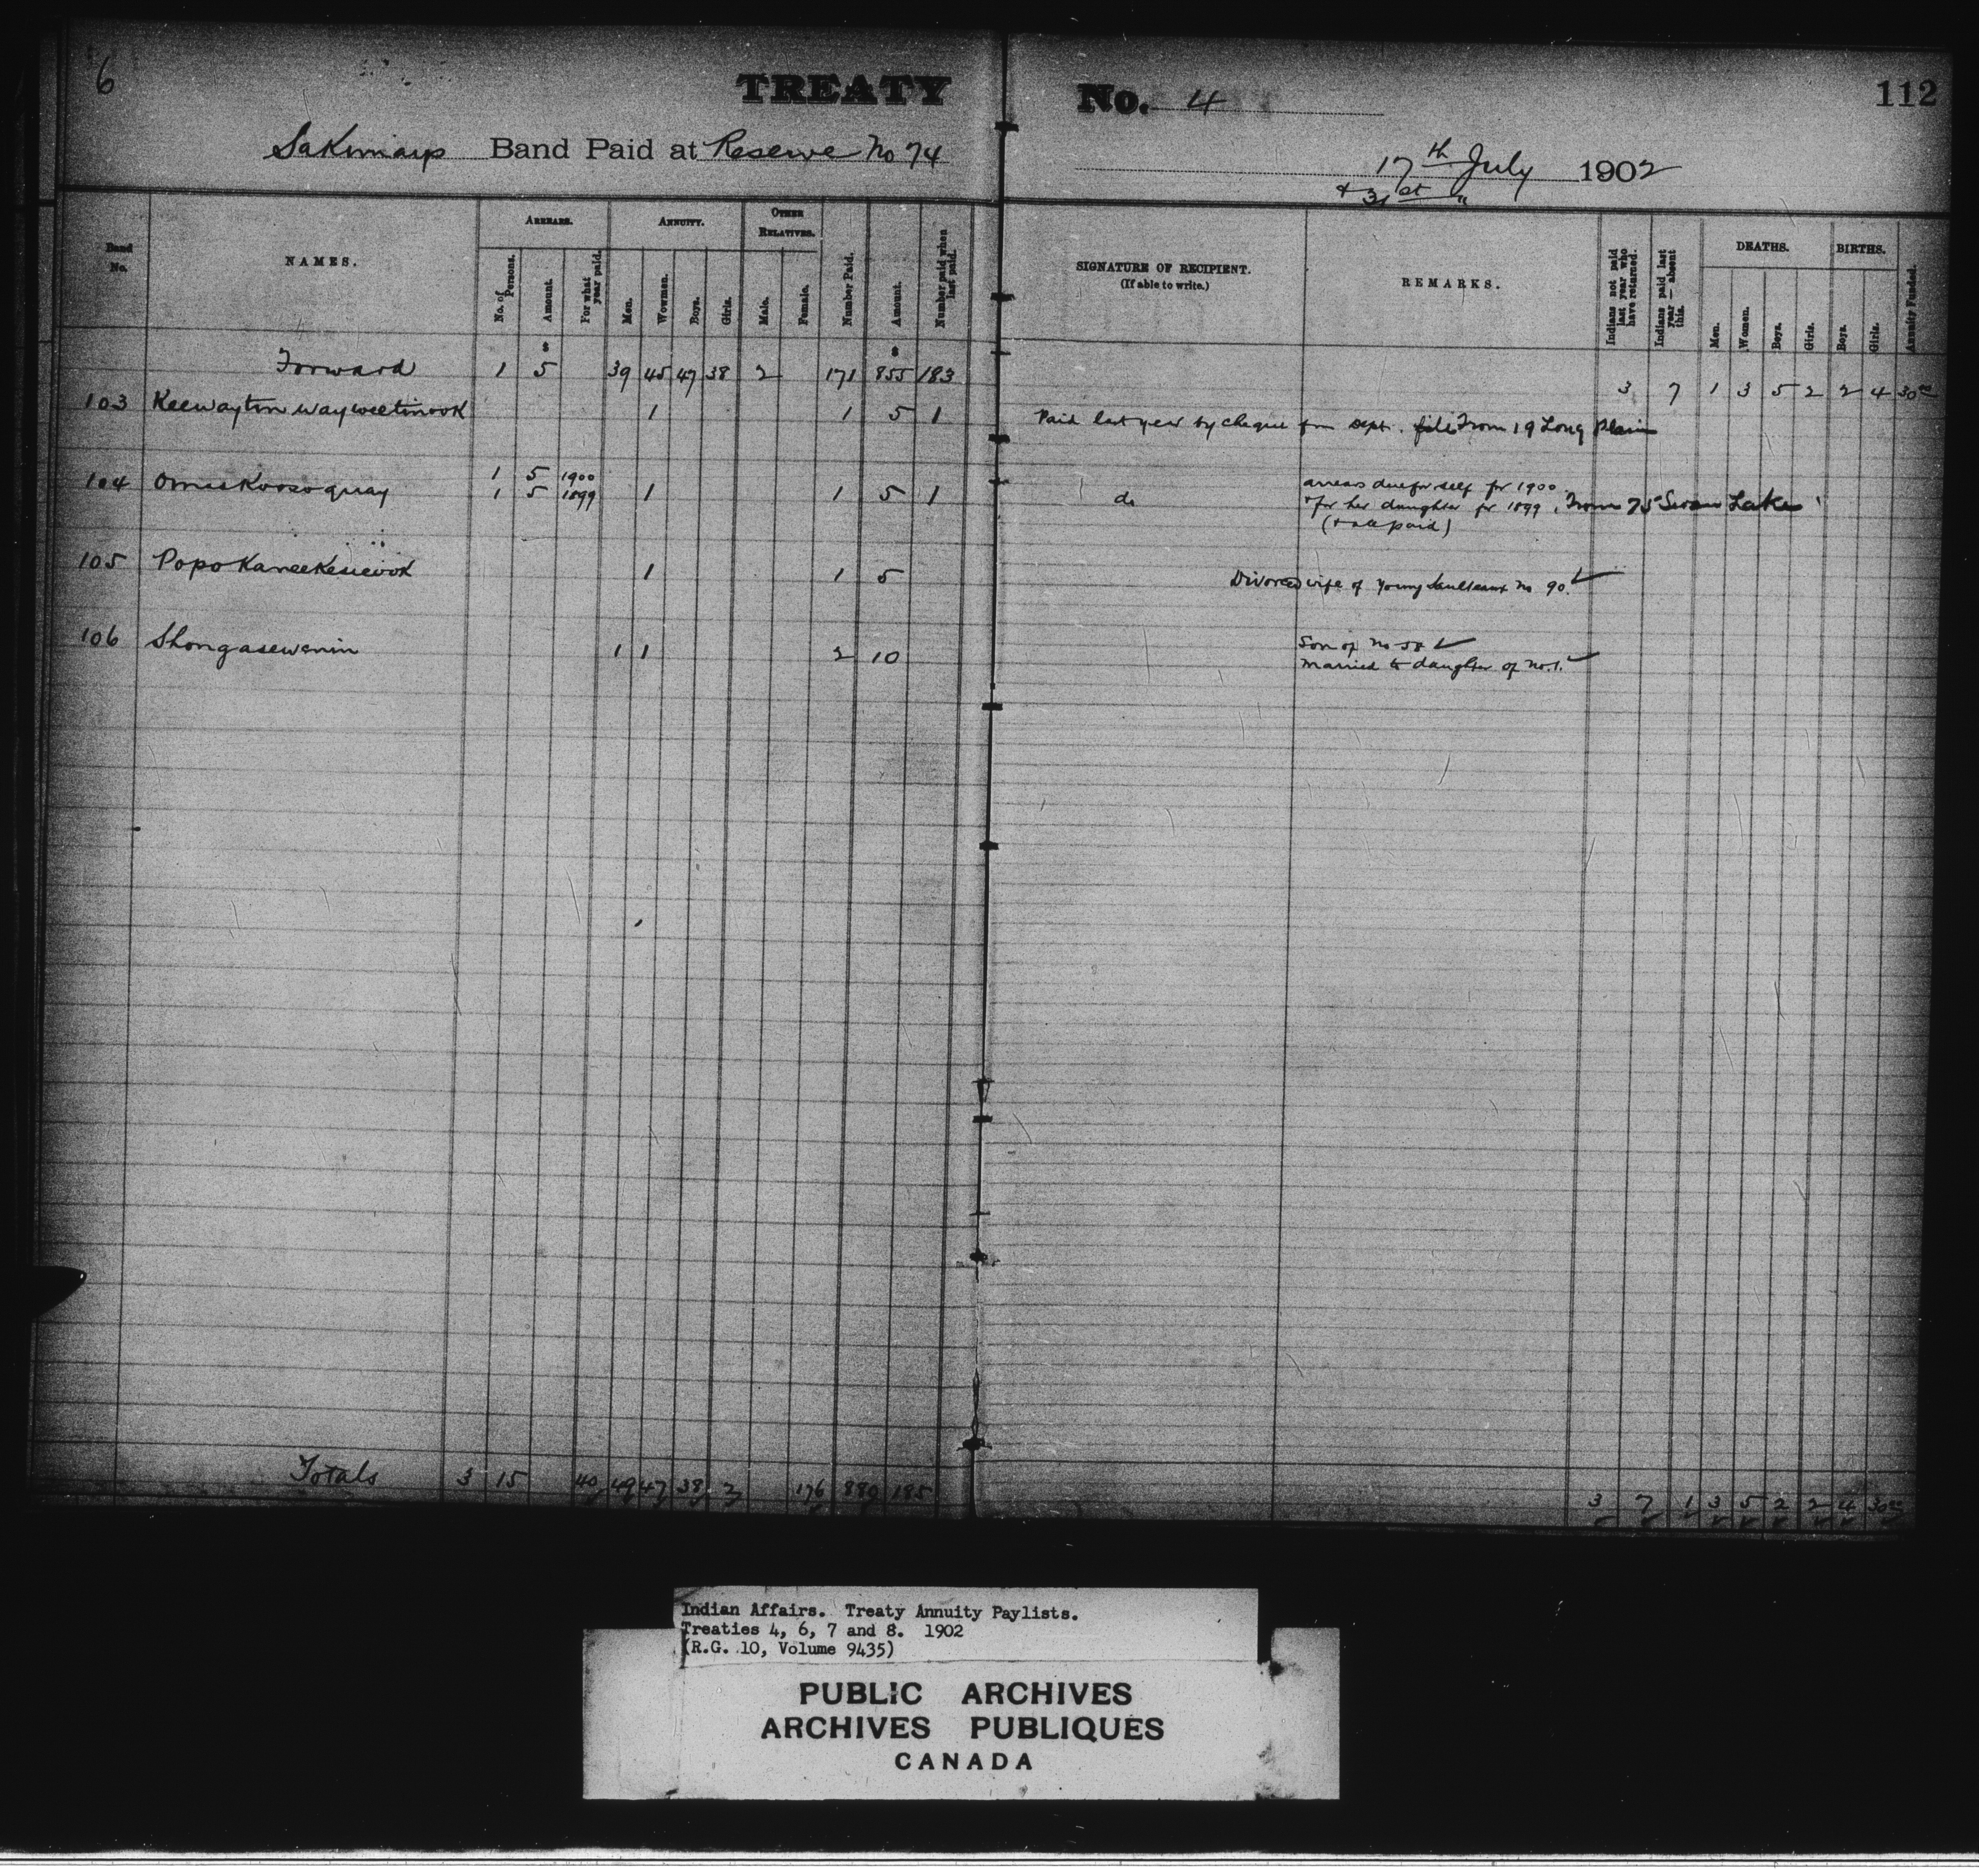 6 TREATY No. 4 112
Sakimays Band Paid at Reserve No 74 17th July 1902
& 31st "
Band No. NAMES. ARREARS. ANNUITY. OTHER RELATIVES. Number Paid. Amount. Number paid when last paid.
No. of Persons. Amount. For what year paid. Men. Wowmen. Boys. Girls. Male. Female.
SIGNATURE OF RECIPIENT. (If able to write.) REMARKS. Indians not paid last year who have returned. Indians paid last year — absent this. DEATHS. BIRTHS. Annuity Funded.
Men. Women. Boys. Girls. Boys. Girls.
Forward 1 5 39 45 47 38 2 171 855 183 3 7 1 3 5 2 2 4 30 00
103 Keewaytin wayweetinook 1 1 5 1 Paid last year by cheque from Dept. From 19 Long Plain
104 Omuskooso quay 1 5 1900 arrears due for self for 1900
1 5 1899 1 1 5 1 do & for her daughter for 1899, From 75 Swan Lake
105 Popokaneekesicook 1 1 5 Divorced wife of Young Saulteaux No 90.
106 Shongasewenin 1 1 2 10 Son of No 58
married to daughter of No. 1.
Totals 3 15 40 49 47 38 2 176 880 185 3 7 1 3 5 2 2 4 30 00
Indian Affairs. Treaty Annuity Paylists.
Treaties 4, 6, 7 and 8. 1902
(R.G. 10, Volume 9435)
PUBLIC ARCHIVES
ARCHIVES PUBLIQUES
CANADA